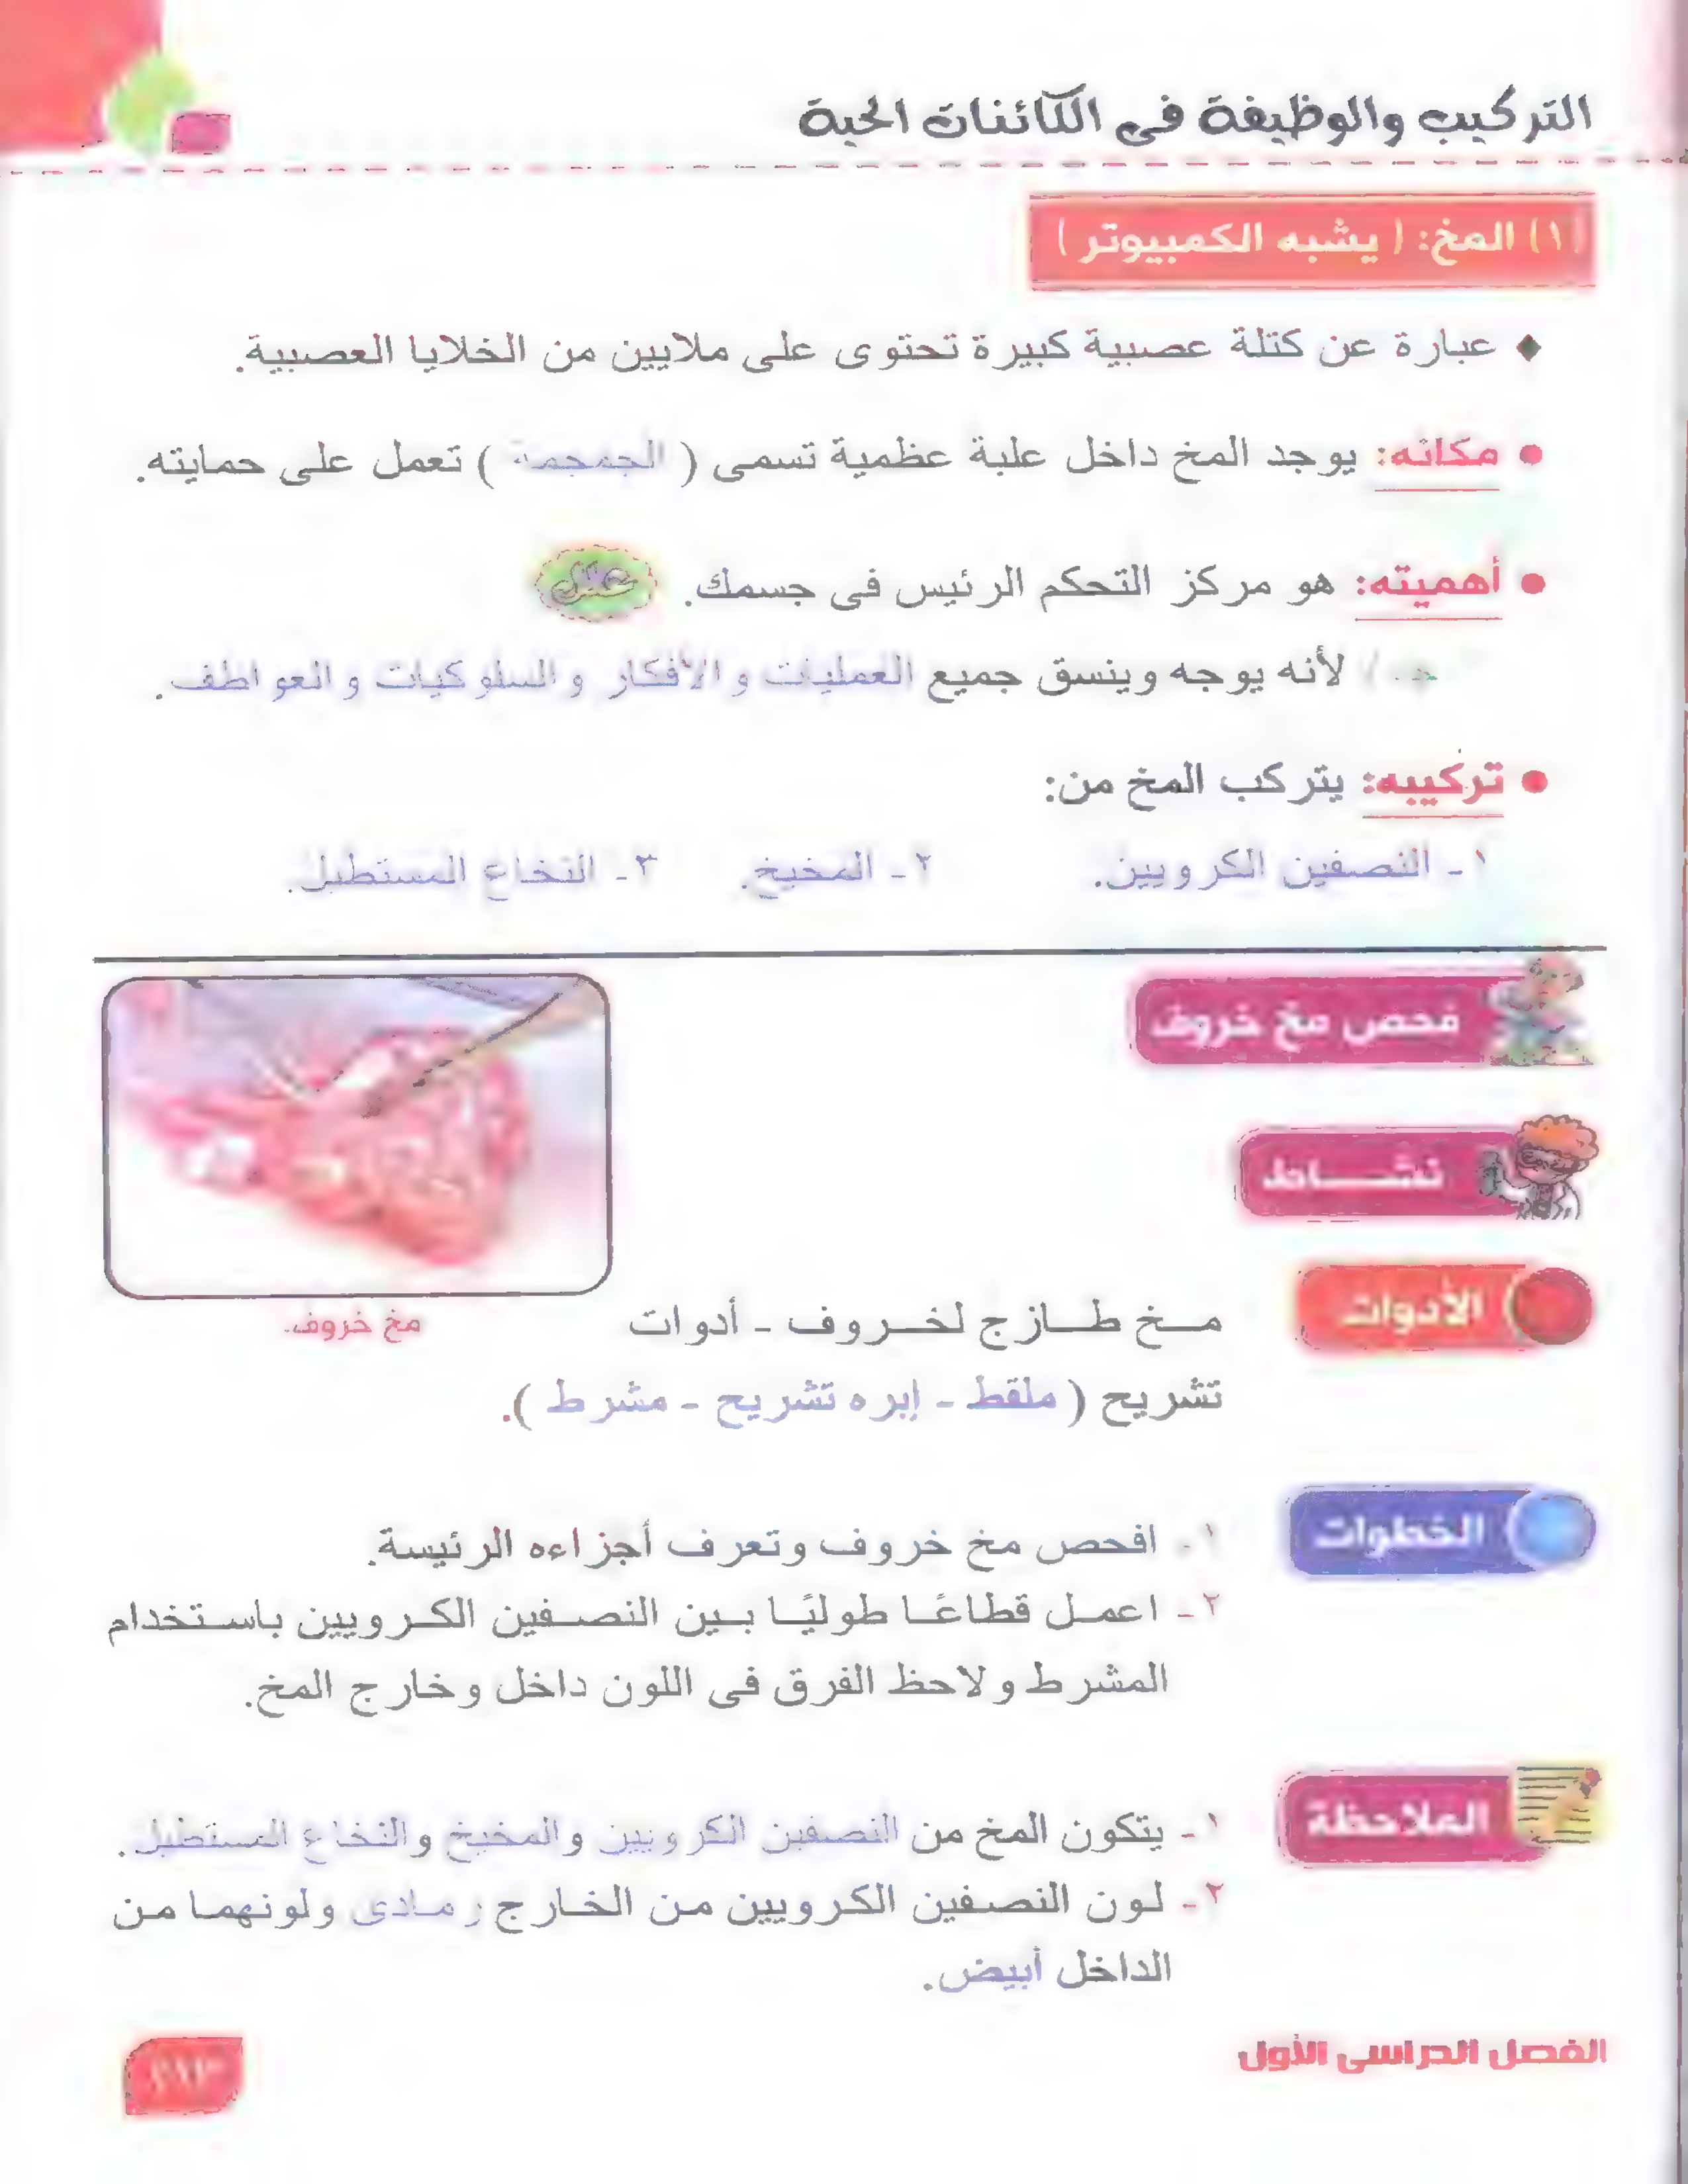 التركيب والوظيفة فى الكائنات الحية
(١) المخ: (يشبه الكمبيوتر)
♦ عبارة عن كتلة عصبية كبيرة تحتوى على ملايين من الخلايا العصبية.
● مكانه: يوجد المخ داخل علبة عظمية تسمى ( الجمجمة ) تعمل على حمايته.
● أهميته: هو مركز التحكم الرئيس فى جسمك. علل
جـ / لأنه يوجه وينسق جميع العمليات والأفكار والسلوكيات والعواطف.
● تركيبه: يتركب المخ من:
١- النصفين الكرويين. ٢- المخيخ. ٣- النخاع المستطيل.
فحص مخ خروف
نشاط
مخ خروف.
الأدوات
مخ طازج لخروف - أدوات
تشريح ( ملقط - إبره تشريح - مشرط ).
الخطوات
١- افحص مخ خروف وتعرف أجزاءه الرئيسة.
٢- اعمل قطاعًا طوليًا بين النصفين الكرويين باستخدام
المشرط ولاحظ الفرق فى اللون داخل وخارج المخ.
الملاحظة
١- يتكون المخ من النصفين الكرويين والمخيخ والنخاع المستطيل.
٢- لون النصفين الكرويين من الخارج رمادى ولونهما من
الداخل أبيض.
الفصل الدراسى الأول